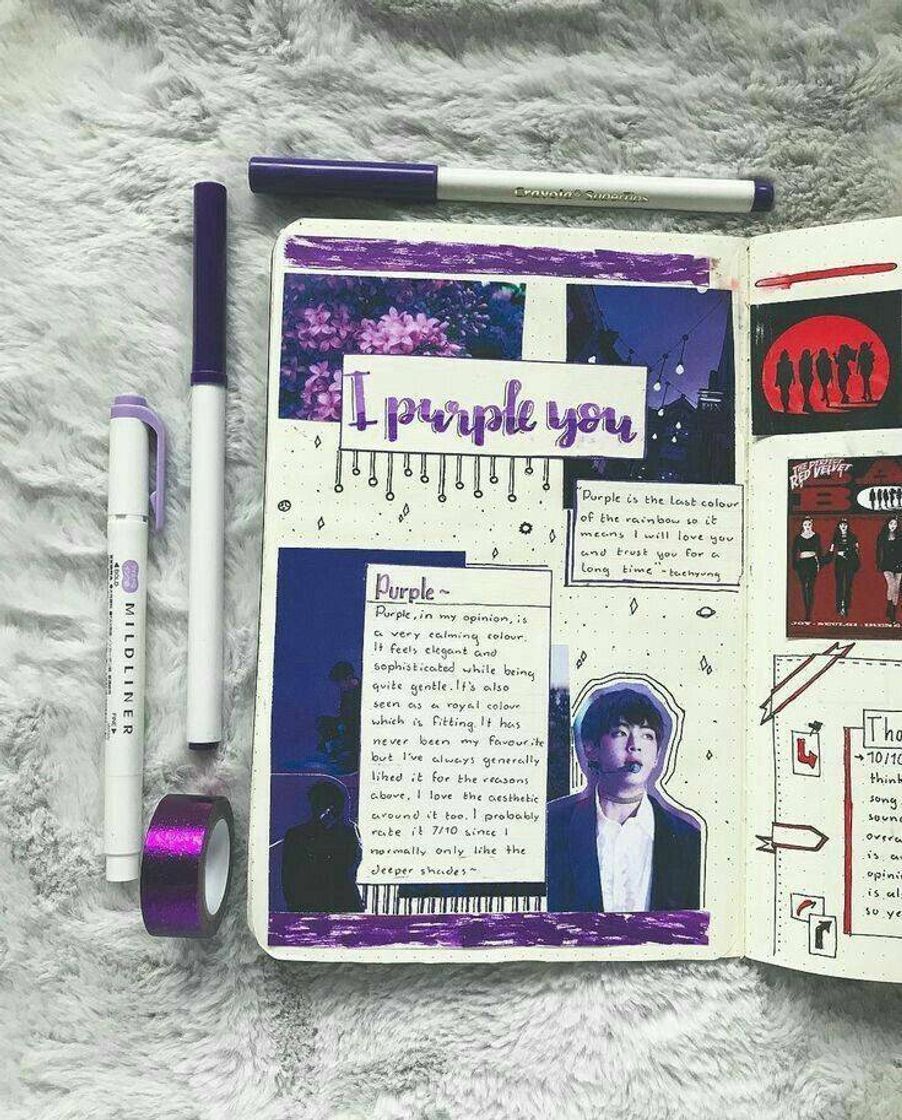 Crayola SuperTips
I purple you
Purple is the last colour
of the rainbow so it
means I will love you
and trust you for a
long time" -taehyung
Purple~
Purple, in my opinion, is
a very calming colour.
It feels elegant and
sophisticated while being
quite gentle. It's also
seen as a royal colour
which is fitting. It has
never been my favourite
but I've always generally
liked it for the reasons
above. I love the aesthetic
around it too. I probably
rate it 7/10 since I
normally only like the
deeper shades~
BOLD
MILDLINER
FINE
THE PERFECT
RED VELVET
BA
B
JOY · SEULGI · IRENE
Tho
10/10
think
song
soun
overa
is a
opini
is al
so ye